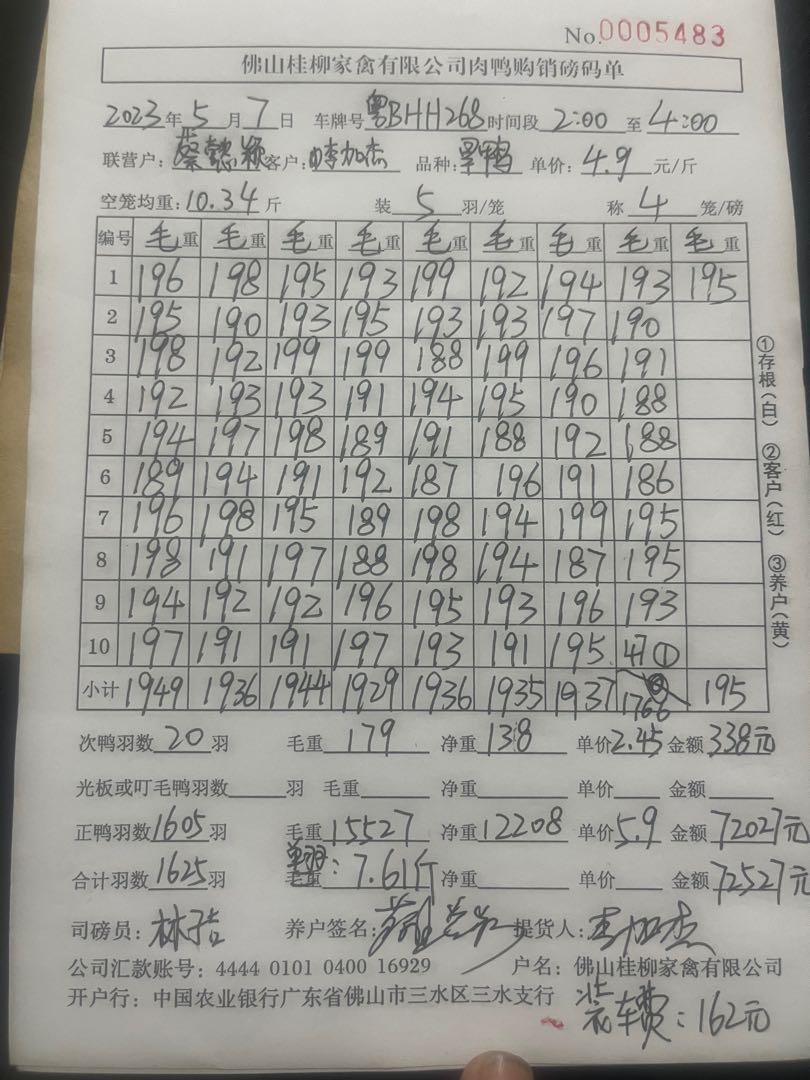 No.0005483
佛山桂柳家禽有限公司肉鸭购销磅码单
2023年5月7日 车牌号粤BHH268时间段2:00至4:00
联营户:蔡懿颖客户:李加杰 品种:旱鸭 单价:4.9元/斤
空笼均重:10.34斤 装5羽/笼 称4笼/磅
编号 毛重 毛重 毛重 毛重 毛重 毛重 毛重 毛重 毛重
1 196 198 195 193 199 192 194 193 195
2 195 190 193 195 193 193 197 190
3 198 192 199 199 188 199 196 191
4 192 193 193 191 194 195 190 188
5 194 197 198 189 191 188 192 188
6 189 194 191 192 187 196 191 186
7 196 198 195 189 198 194 199 195
8 198 191 197 188 198 194 187 195
9 194 192 192 196 195 193 196 193
10 197 191 191 197 193 191 195 47①
小计 1949 1936 1944 1929 1936 1935 1937 1766 195
①存根(白) ②客户(红) ③养户(黄)
次鸭羽数20羽 毛重179 净重138 单价2.45金额338元
光板或叮毛鸭羽数 羽 毛重 净重 单价 金额
正鸭羽数1605羽 毛重15527 净重12208单价5.9金额72027元
合计羽数1625羽 毛重 单羽:7.61斤 净重 单价 金额72527元
司磅员:林浩 养户签名: 提货人:李加杰
公司汇款账号:4444 0101 0400 16929 户名:佛山桂柳家禽有限公司
开户行:中国农业银行广东省佛山市三水区三水支行 装车费:162元